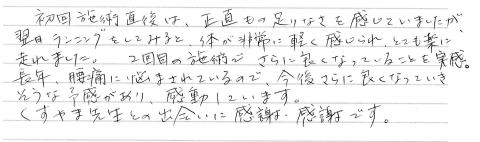 初回施術直後は、正直もの足りなさを感じていましたが
翌日ランニングをしてみると、体が非常に軽く感じられ、とても楽に
走れました。 2回目の施術で さらに良くなっていることを実感。
長年、腰痛に悩まされているので、今後さらに良くなっていき
そうな予感があり、感動しています。
くすやま先生との出会いに感謝・感謝です。